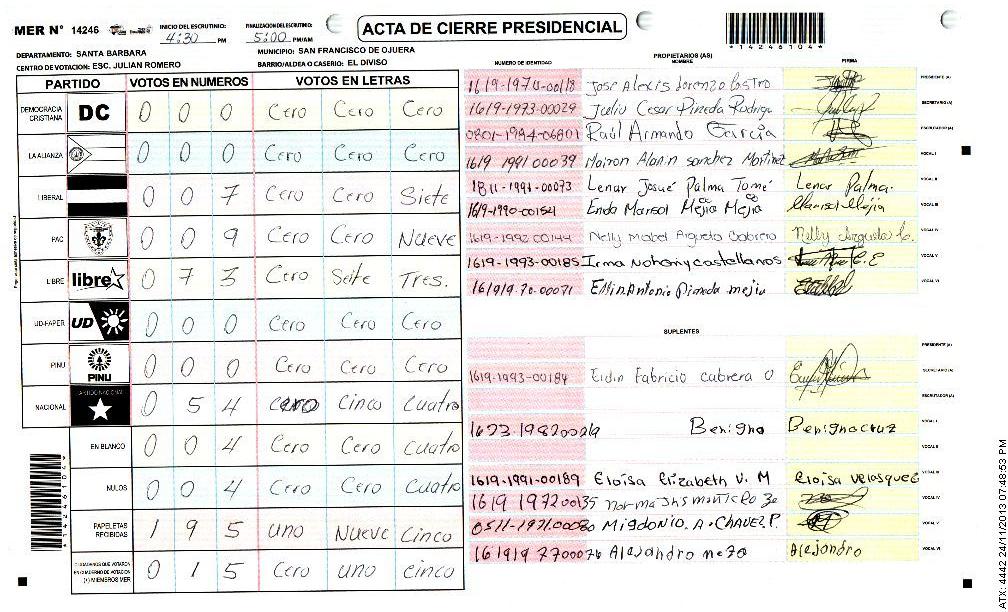 MER N° 14246
INICIO DEL ESCRUTINIO: 4:30 PM
FINALIZACION DEL ESCRUTINIO: 5:00 PM/AM
ACTA DE CIERRE PRESIDENCIAL
*14246104*
DEPARTAMENTO: SANTA BARBARA
MUNICIPIO: SAN FRANCISCO DE OJUERA
CENTRO DE VOTACION: ESC. JULIAN ROMERO
BARRIO/ALDEA O CASERIO: EL DIVISO
PARTIDO VOTOS EN NUMEROS VOTOS EN LETRAS
DEMOCRACIA CRISTIANA DC 0 0 0 Cero Cero Cero
LA ALIANZA 0 0 0 Cero Cero Cero
LIBERAL 0 0 7 Cero Cero Siete
PAC 0 0 9 Cero Cero Nueve
LIBRE libre 0 7 3 Cero Siete Tres.
UD-FAPER UD 0 0 0 Cero Cero Cero
PINU PINU 0 0 0 Cero Cero Cero
NACIONAL PARTIDO NACIONAL 0 5 4 Cero Cinco Cuatro
EN BLANCO 0 0 4 Cero Cero Cuatro
NULOS 0 0 4 Cero Cero Cuatro
PAPELETAS RECIBIDAS 1 9 5 Uno Nueve Cinco
CIUDADANOS QUE VOTARON EN CUADERNO DE VOTACION (+) MIEMBROS MER 0 1 5 Cero uno cinco
*14246104*
PROPIETARIOS (AS)
NUMERO DE IDENTIDAD NOMBRE FIRMA
1619-1974-00118 Jose Alexis Lorenzo Castro PRESIDENTE (A)
1619-1993-00029 Julio Cesar Pineda Rodrigo SECRETARIO (A)
0801-1994-06801 Raúl Armando Garcia ESCRUTADOR (A)
1619 1991 00039 Moiron Alanin sanchez Martinez VOCAL I
1811-1991-00073 Lenar Josué Palma Tomé Lenar Palma. VOCAL II
1619-1990-00154 Enda Marisol Mejia Mejia Marisol Mejia VOCAL III
1619-1992-00144 Nelly Mabel Argueta Cabrera Nelly Argueta C. VOCAL IV
1619-1993-00185 Irma Nohemy castellanos VOCAL V
161919 70-00071 Antonio Pineda mejia VOCAL VI
SUPLENTES
PRESIDENTE (A)
1619-1993-00184 Eldin Fabricio cabrera O SECRETARIO (A)
ESCRUTADOR (A)
1623-1982 Benigno Benigna cruz VOCAL I
VOCAL II
1619-1991-00189 Eloísa Elizabeth V. M Eloisa velasquez VOCAL III
1619 1972 00135 norma VOCAL IV
0511-1971.00030 Migdonio. A. CHAVEZ P. VOCAL V
161919 7700076 Alejandro meza Alejandro VOCAL VI
ATX: 4442 24/11/2013 07:48:53 PM